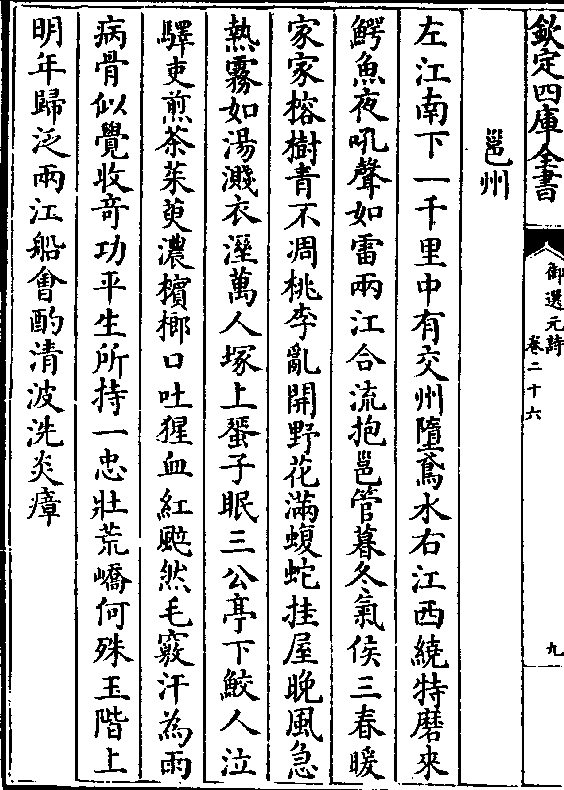 欽定四庫全書
御選元詩
卷二十六
九
邕州
左江南下一千里中有交州墮鳶水右江西繞特磨來
鰐魚夜吼聲如雷兩江合流抱邕管暮冬氣侯三春暖
家家榕樹青不凋桃李亂開野花滿蝮蛇挂屋晚風急
熱霧如湯濺衣溼萬人塚上蜑子眠三公亭下鮫人泣
驛吏煎茶茱萸濃檳榔口吐猩血紅颯然毛竅汗為雨
病骨似覺收竒功平生所持一忠壯荒嶠何殊玉階上
明年歸泛兩江船會酌清波洗炎瘴